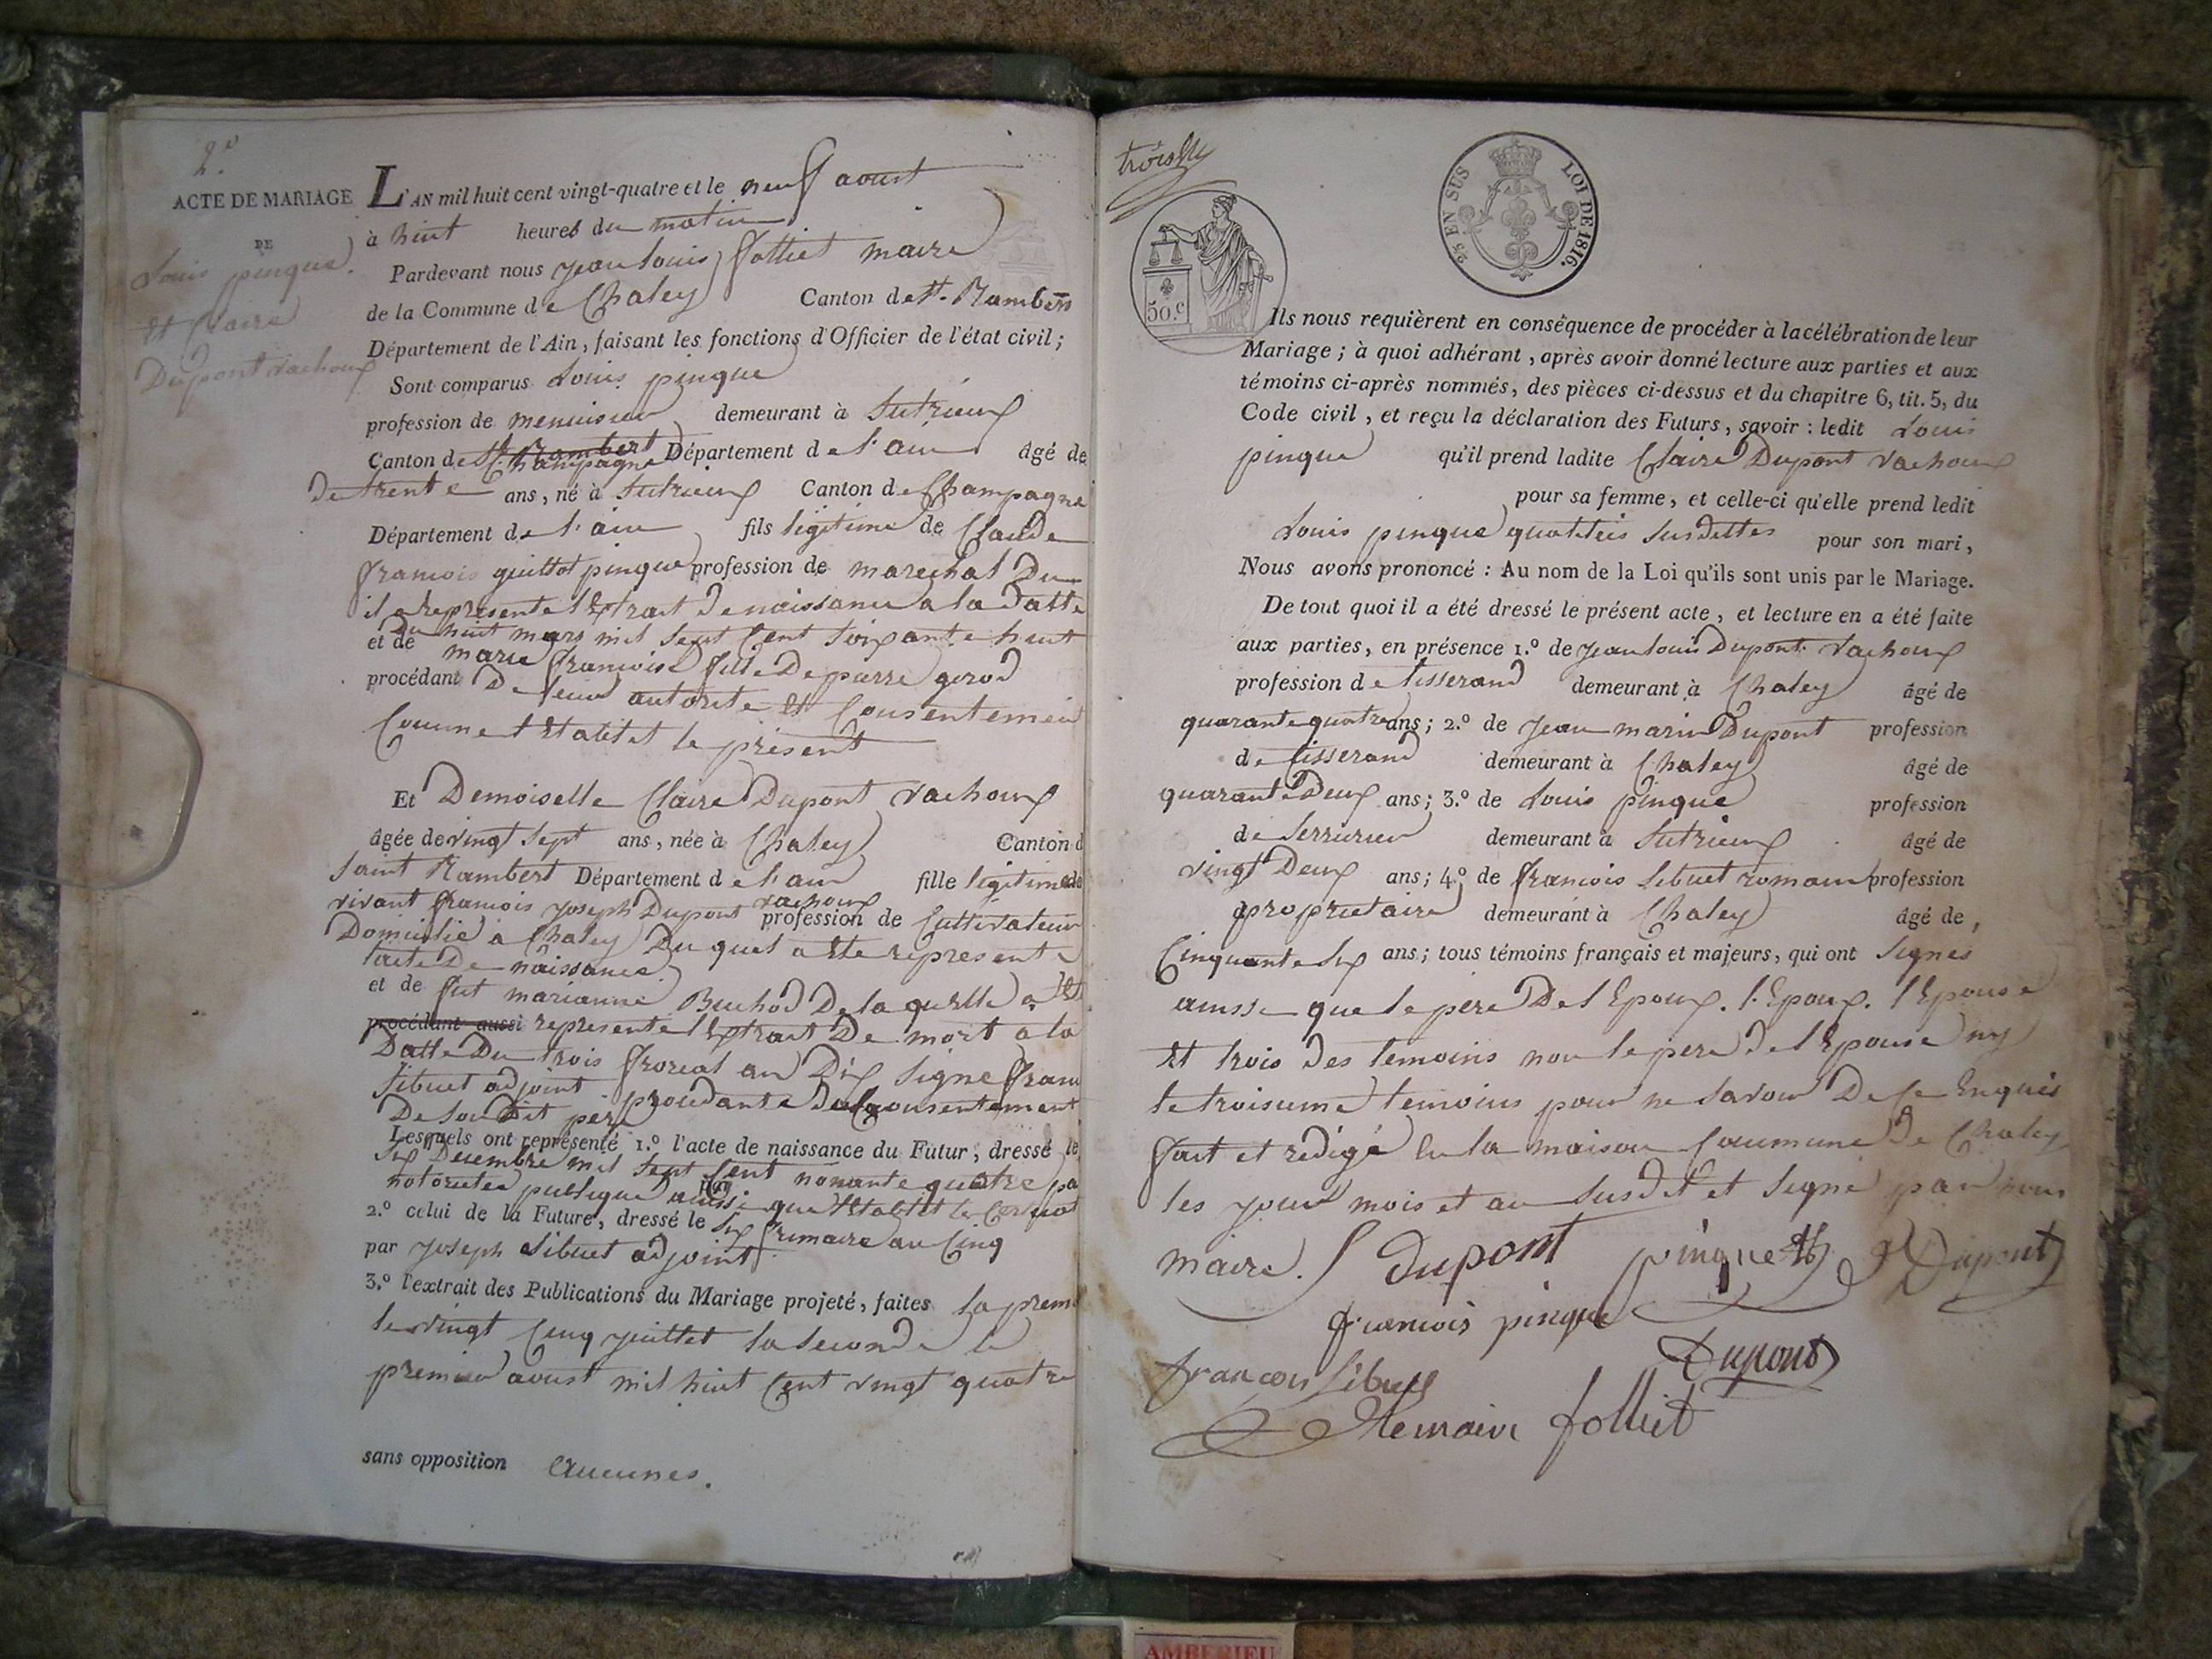 2.e
ACTE DE MARIAGE
DE
Louis pinque
et Claire
Dupont vachoux
L'AN mil huit cent vingt-quatre et le neuf aoust
à huit heures du matin
Pardevant nous jean louis folliet maire
de la Commune de Chaley Canton de St. Rambert
Département de l'Ain, faisant les fonctions d'Officier de l'état civil;
Sont comparus Louis pinque
profession de menuisier demeurant à Sutrieux
Canton de St. Rambert Champagne Département de l'ain âgé de
de trente ans, né à Sutrieux Canton de Champagne
Département de l'ain fils légitime de Claude
francois guillot pinque profession de marechal Du
il a représenté l'Extrait de naissance a la datte
Du huit mars mil sept Cent soixante huit
et de marie francoise fille De pierre gorod
procédant De leur autorité et Consentement
Comme l'Etablit le présent
Et Demoiselle Claire Dupont vachoux
âgée de vingt sept ans, née à Chaley Canton d
Saint Rambert Département de l'ain fille légitime de
vivant francois joseph Dupont vachoux profession de Cultivateur
Domicilié à Chaley Du quel a ete represente
l'acte De naissance
et de fut marianne Buchod De la quelle a été
procédant aussi represente l'Extrait De mort a la
Datte Du trois floreal an Dix Signe fran
Sibuet adjoint procedante du Consentement
De son Dit pere
Lesquels ont représenté 1.º l'acte de naissance du Futur, dressé le
six Decembre mil sept Cent nonante quatre pa
notorietee publique aussi que l'Etablit le
2.º celui de la Future, dressé le six frimaire an Cinq
par joseph Sibuet adjoint
3.º l'extrait des Publications du Mariage projeté, faites la prem
le vingt Cinq juillet la seconde le
premier aoust mil huit Cent vingt quatre
sans opposition aucunes.
trois
50.c
25 EN SUS LOI DE 1816.
Ils nous requièrent en conséquence de procéder à la célébration de leur
Mariage; à quoi adhérant, après avoir donné lecture aux parties et aux
témoins ci-après nommés, des pièces ci-dessus et du chapitre 6, tit. 5, du
Code civil, et reçu la déclaration des Futurs, savoir: ledit Louis
pinque qu'il prend ladite Claire Dupont vachoux
pour sa femme, et celle-ci qu'elle prend ledit
Louis pinque qualités susdittes pour son mari,
Nous avons prononcé: Au nom de la Loi qu'ils sont unis par le Mariage.
De tout quoi il a été dressé le présent acte, et lecture en a été faite
aux parties, en présence 1.º de jean louis Dupont vachoux
profession de tisserand demeurant à Chaley âgé de
quarante quatre ans; 2.º de jean marin Dupont profession
de tisserand demeurant à Chaley âgé de
quarante Deux ans; 3.º de Louis pinque profession
de serrurier demeurant à Sutrieux âgé de
vingt Deux ans; 4.º de francois Sibuet romain profession
propriétaire demeurant à Chaley âgé de,
Cinquante six ans; tous témoins français et majeurs, qui ont signés
ainssi que le pere De l'Epoux. l'Epoux. l'Epouse
et trois des temoins non le pere de l'Epouse ny
le troisieme temoins pour ne savoir De Ce Enquis
fait et redigé En la maison Commune De Chaley
les jour mois et an susdit et signé par nous
maire. dupont pinque Dupont
francois pinque
Dupont
françois Sibuet
Remain folliet
AMBERIEU